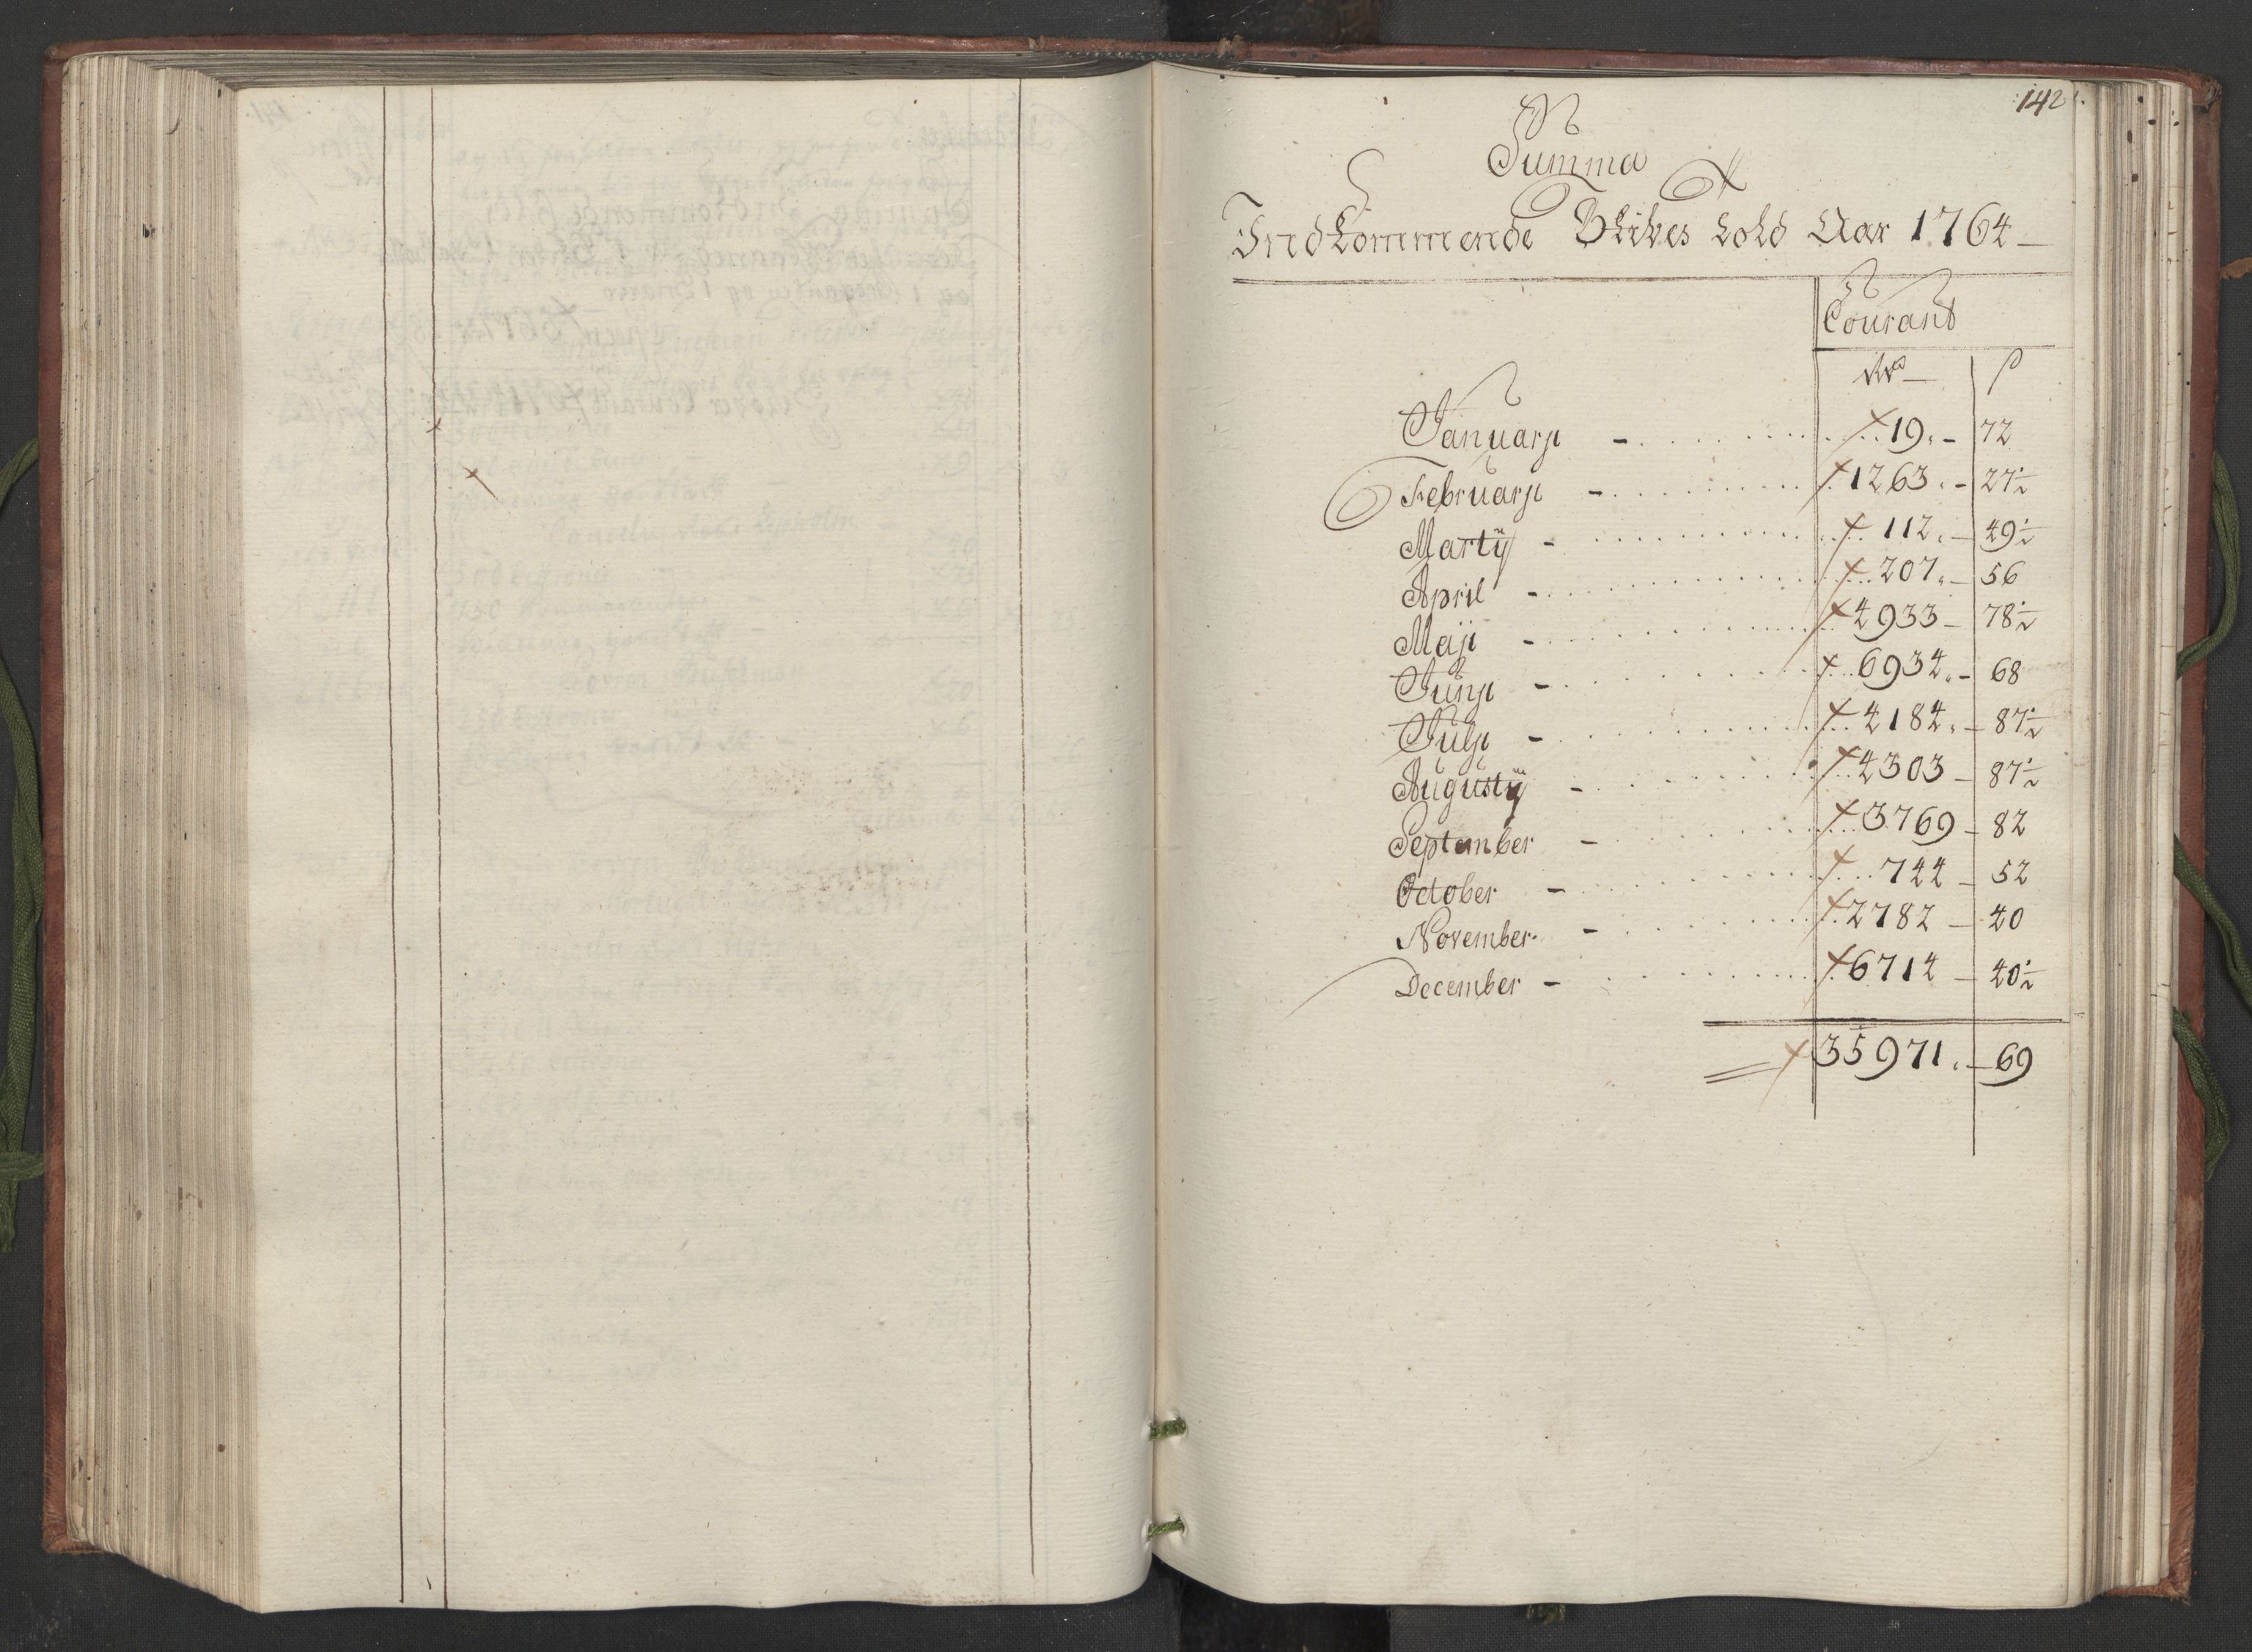 142.
Summa
Indkommende Skibes Told Aar 1764
Courant
Rd ß
Januarji - 19. - 72
Februarji - 1263. - 27½
Martij - 112. - 49½
April - 207. - 56
Maji - 4933 - 78½
Junji - 6934. - 68
Julji - 4184. - 87½
Augustij - 4303 - 87½
September - 3769 - 82
October - 744 - 52
November - 2782 - 40
December - 6714 - 40½
35971. - 69